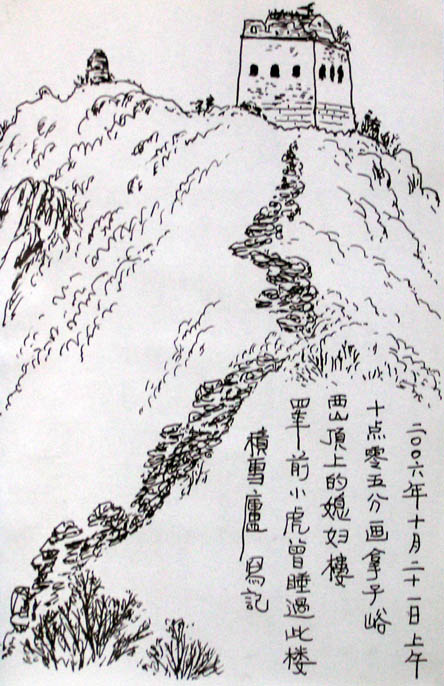 二〇〇六年十月二十一日上午
十点零五分画拿子峪
西山頂上的媳妇樓
四年前小虎曾睡過此楼
積雪廬 寫記